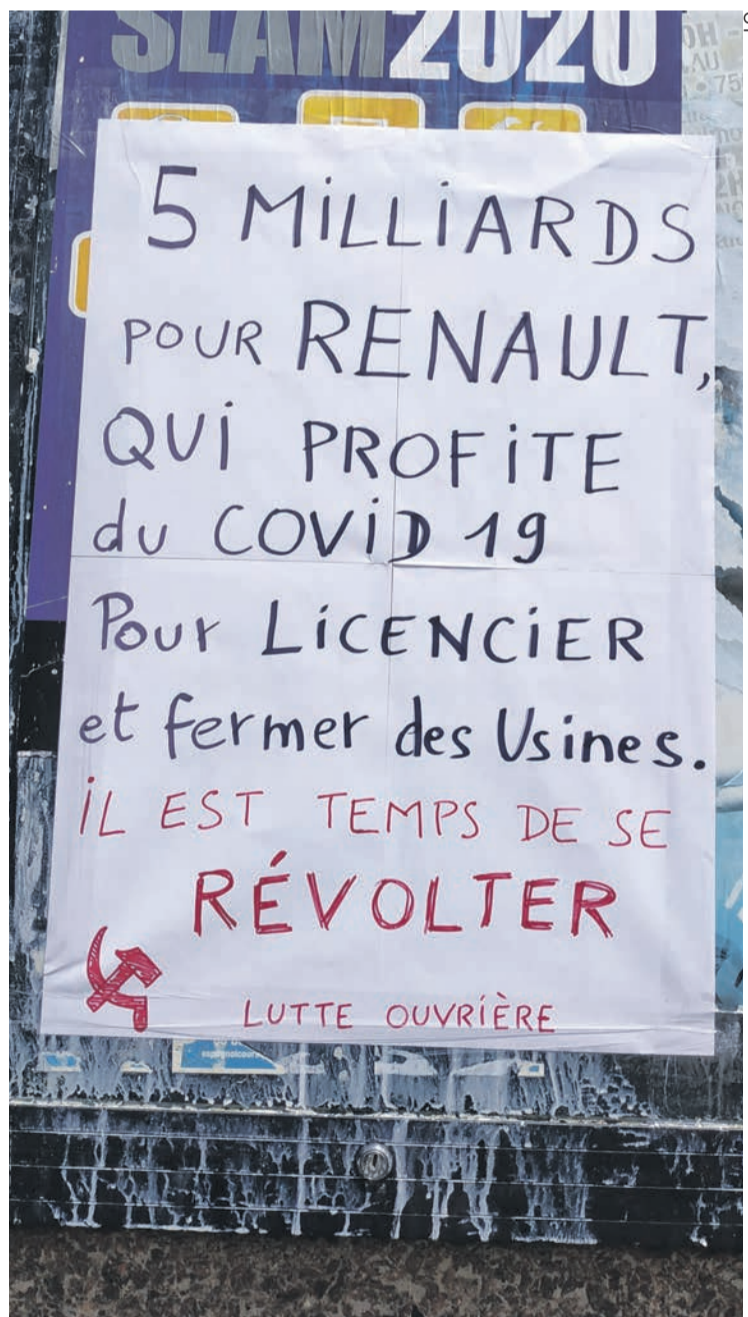 SLAM2020
5 MiLLiARDS
POUR RENAULT,
QUi PROFiTE
du COViD 19
Pour LiCENCiER
et fermer des Usines.
iL EST TEMPS DE SE
RÉVOLTER
LUTTE OUVRiÈRE